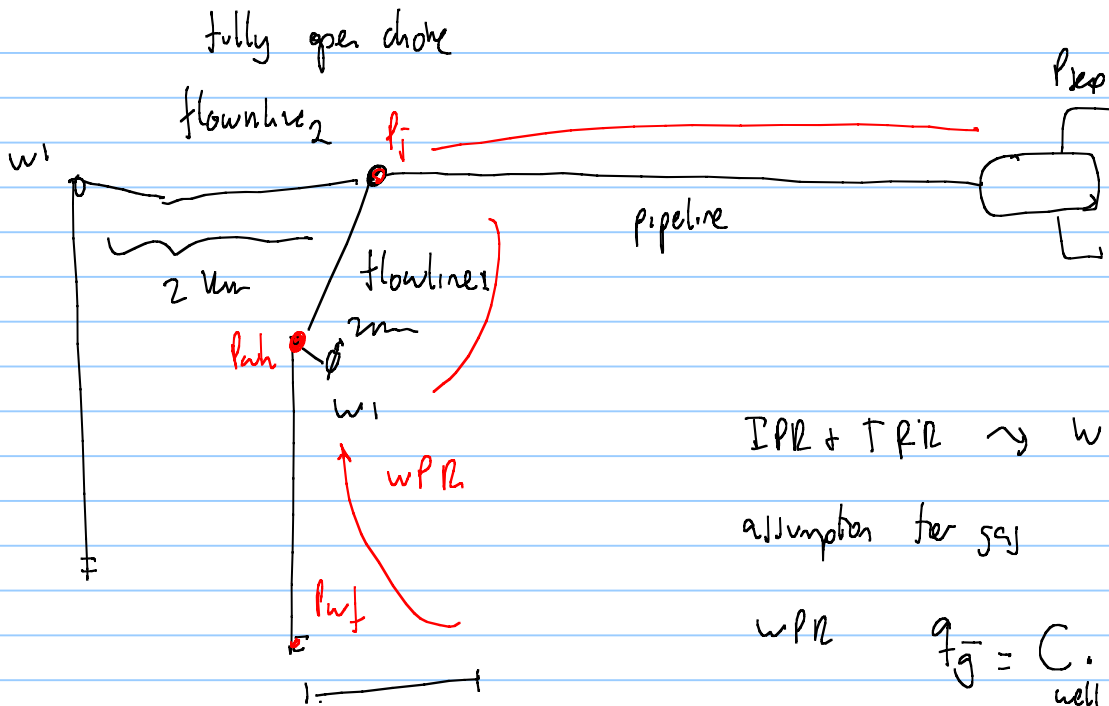 fully open choke
Psep
flowline2
Pj
w1
pipeline
2 km
flowline1
Pwh
w1
IPR & TPR ~> W
WPR
assumption for gas
Pwf
WPR qg̅ = Cwell.